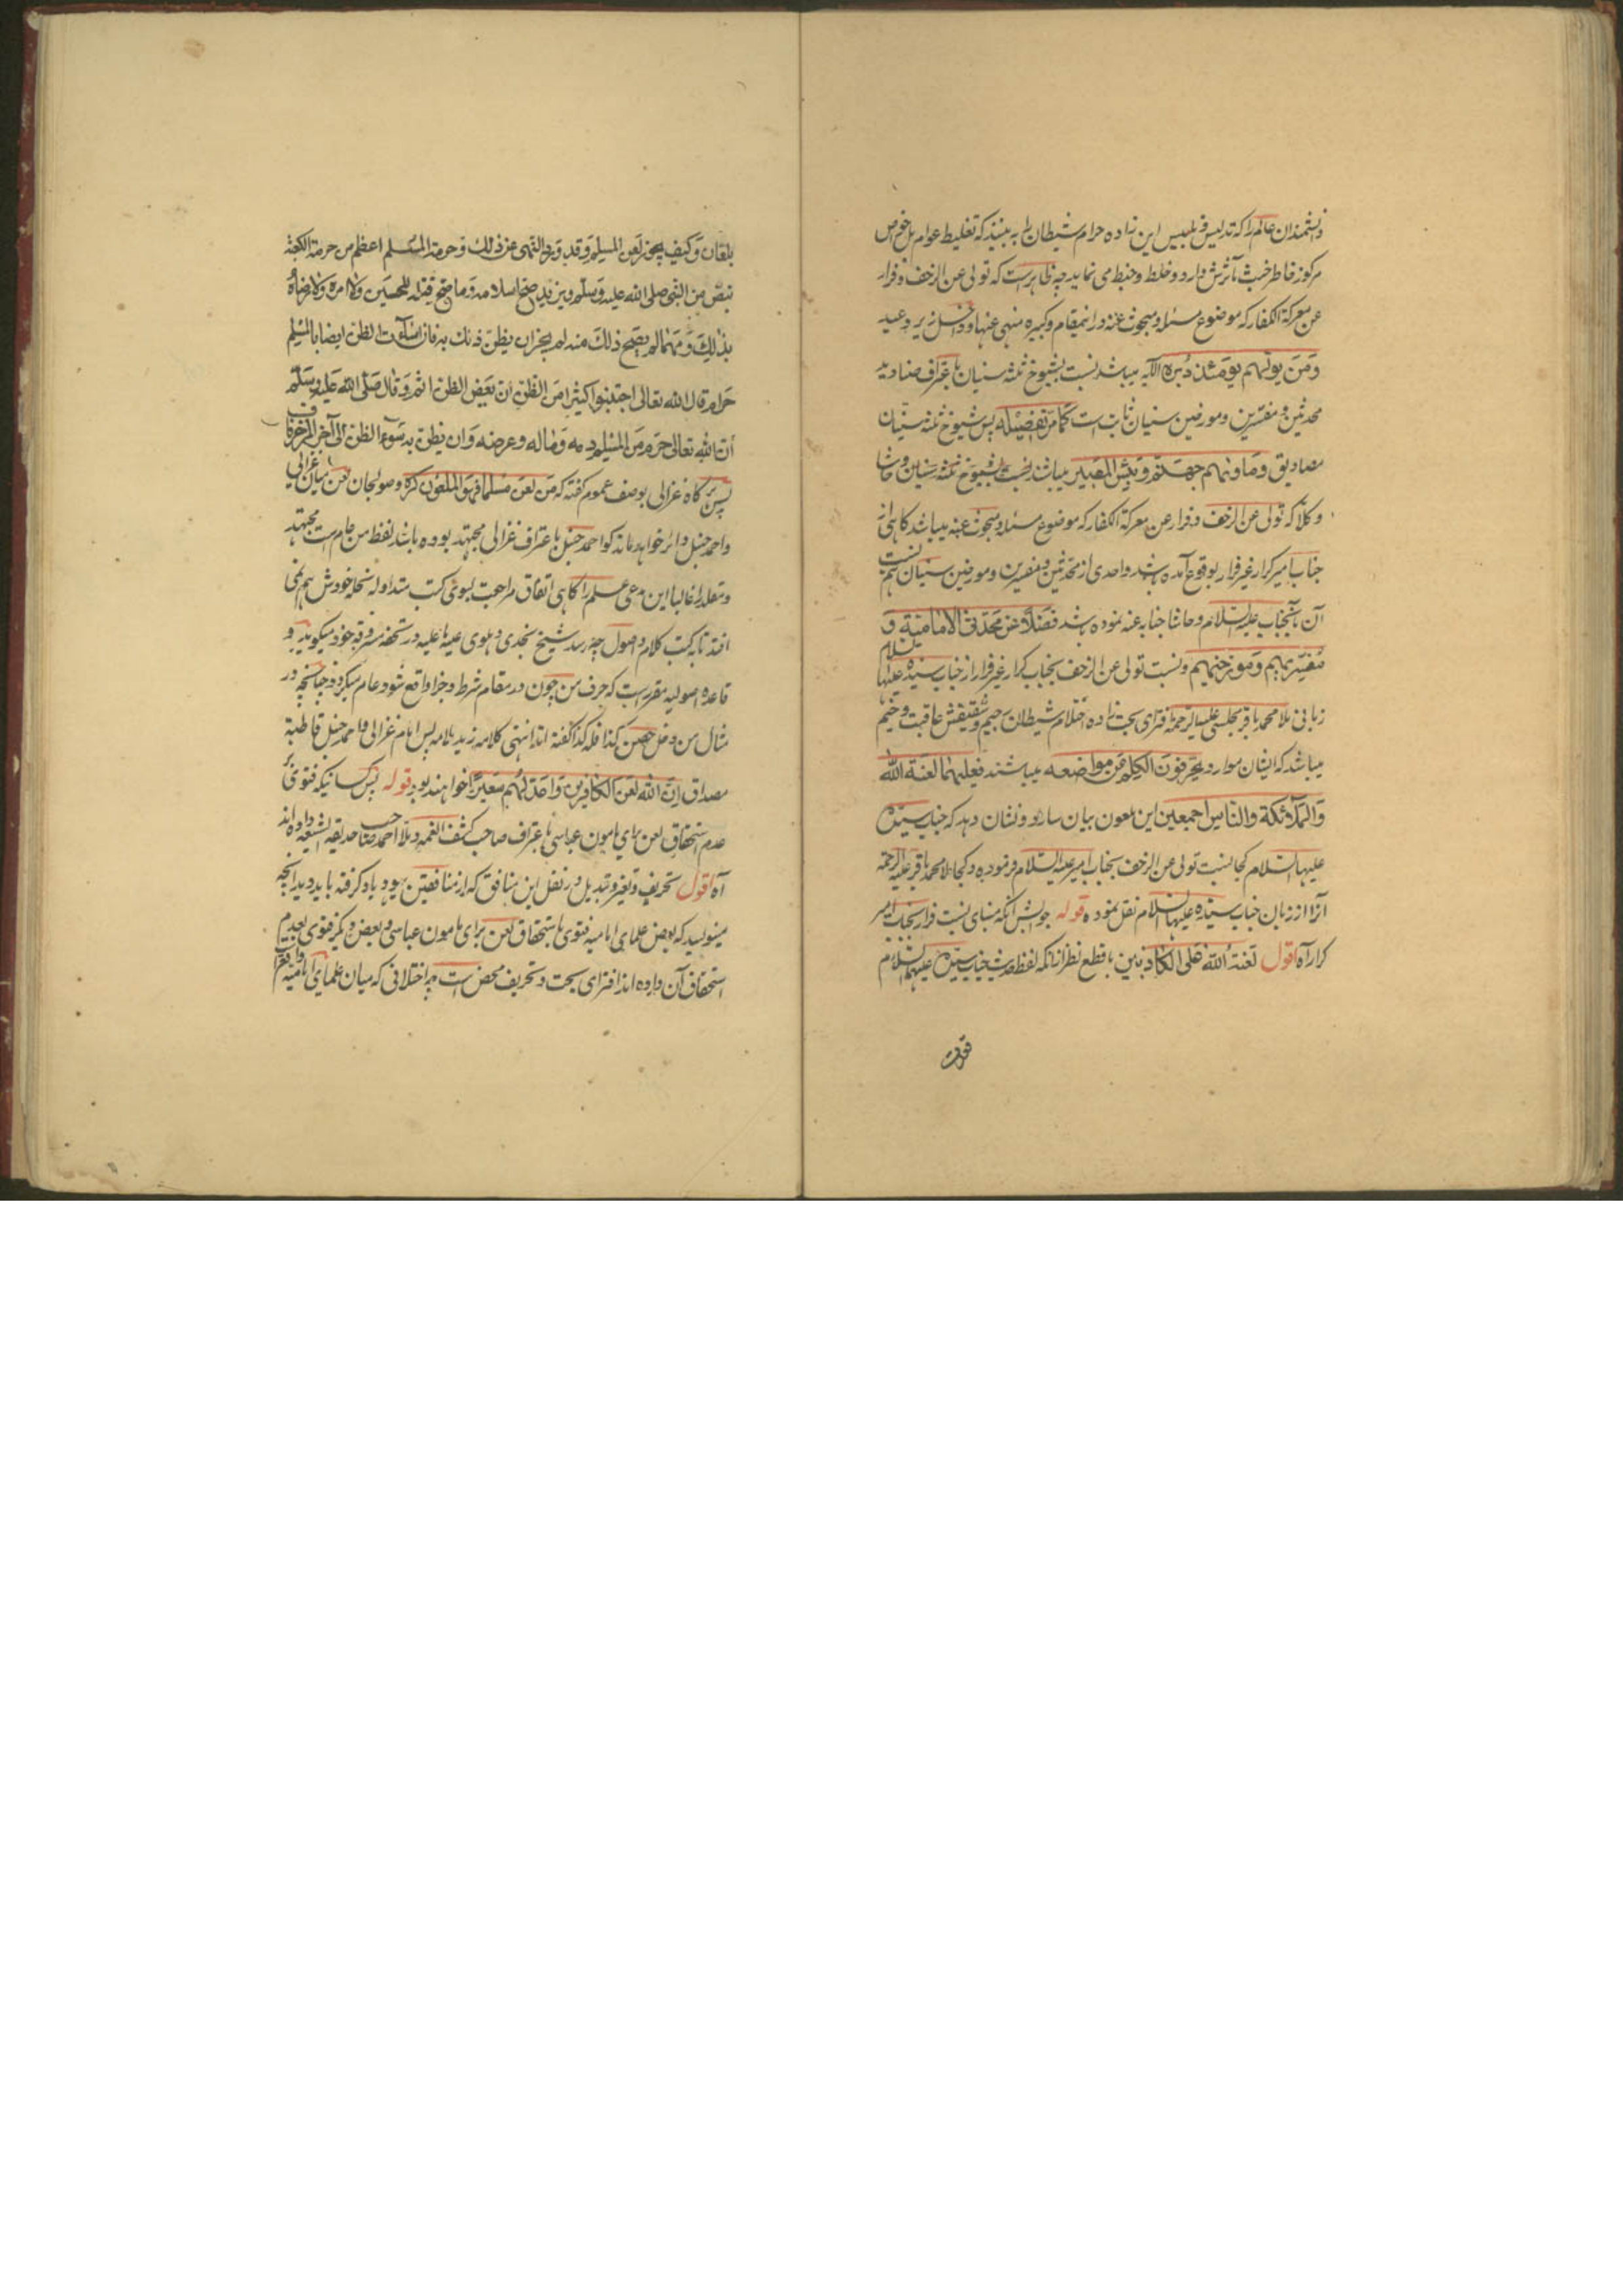 دانشمندان عالم را که تدلیس و تلبیس این زاده حرام شیطان را به بینند که تغلیط عوام
مرکوز خاطر خبث مآثرش دارد و خلط و خبط می نماید چه ظاهر است که تولی عن الزحف و فرار
عن معرکة الکفار که موضوع مسئله و مبحوث عنه درانمقام و کبیره منهی عنها و داخل زیر وعید
وَمَن یولّهم یومَئذ دُبره الآیه میباشد نسبت بشیوخ ثلثه سنیان باعتراف صنادید
محدثین و مفسرین و مورخین سنیان ثابت است کَما مَرّ تفضیله پس شیوخ ثلثه سنیان
مصادیق وَمأونهم جهنّم وبِئس المصیر میباشند نسبت بشیوخ ثلثه سنیان و حاشا
وکلا که تولی عن الزحف و فرار عن معرکة الکفار که موضوع مسئله و مبحوث عنه میباشد کاهی از
جناب امیر کرار غیر فرار بوقوع آمده باشد واحدی از محدثین و مفسرین و مورخین سنیان هم نسبت
آن بآنجناب علیه السلام و حاشا جنابه عنه نموده باشد فضلاً عن محدّثی الامامیة و
مُفسّریهم ومورّخیهم و نسبت تولی عن الزحف بجناب کرار غیر فرار از جناب سیده علیها السلام
زبانی ملا محمد باقر مجلسی علیه الرحمه افترای بحت زاده احتلام شیطان رجیم و شقیقش عاقبت وخیم
میباشد که ایشان موارد یحرّفون الکلم عن مواضعه میباشند فعلیهما لعنة الله
والملائکة والناس اجمعین این ملعون بیان سازد و نشان دهد که جناب سیده
علیها السلام کجا نسبت تولی عن الزحف بجناب امیر علیه السلام فرموده و کجا ملا محمد باقر علیه الرحمه
آنرا از زبان جناب سیده علیها السلام نقل نموده قوله جوابش آنکه مبنای نسبت فرار بجناب امیر
کرار آه اقول لعنةُ الله علی الکاذبین باقطع نظر ازانکه لفظ جناب سیده علیها السلام
بلعان وکیف یجوز لعن المسلم وقد ورد النهی عن ذلك وحرمة المسلم اعظم من حرمة الکعبة
بنصّ من النبی صلی الله علیه وسلم ویزید صحّ اسلامه وما صحّ قتله للحسین ولا امره ولا رضاه
بذلك ومهما لم یصحّ ذلك منه لم یجز ان یظنّ ذلك به فان اساءت الظن ایضا بالمسلم
حرام قال الله تعالی اجتنبوا کثیرا من الظنّ انّ بعض الظن اثم وقال صلی الله علیه وسلم
انّ الله تعالی حرّم من المسلم دمه وماله وعرضه وان یظنّ به سوء الظن الی آخر المزخرفات
پس هرکاه غزالی بوصف عموم کفته که من لعن مسلما فهو الملعون کره و صولجان لعن میان غزالی
واحمد حنبل دائر خواهد ماند کو احمد حنبل باعتراف غزالی مجتهد بوده باشد لفظ من عام است مجتهد
ومقلد را غالبا این مدعی علم را کاهی اتفاق مراجعت بسوی کتب متداوله نحایه خودش هم نمی
افتد تا به کتب کلام و اصول چه رسد شیخ نجدی دهلوی علیه ما علیه در تحفه مسروقه خود میکوید و
قاعده اصولیه مقرر است که حرف من چون در مقام شرط و جزا واقع شود عام میکردد چنانچه در
مثال من دخل حصن کذا فله کذا کفته اند انتهی کلامه زید ملامه پس امام غزالی و احمد حنبل قاطبة
مصداق اِنّ الله لعن الکافرین واعدّ لهم سعیراً خواهند بود قوله پس کسانیکه فتوی
عدم استحقاق لعن برای مامون عباسی باعتراف صاحب کشف الغمه و ملا احمد صاحب حدیقة الشیعه داده اند
آه اقول تحریف و تغیر و تبدیل در نقل این منافق که از منافقین یهود یاد کرفته باید دید آنچه
مینویسد که بعض علمای امامیه فتوی باستحقاق لعن برای مامون عباسی و بعض دیکر فتوی بعدم
استحقاق آن داده اند افترای بحت و تحریف محض است چه اختلافی که میان علمای امامیه واقع